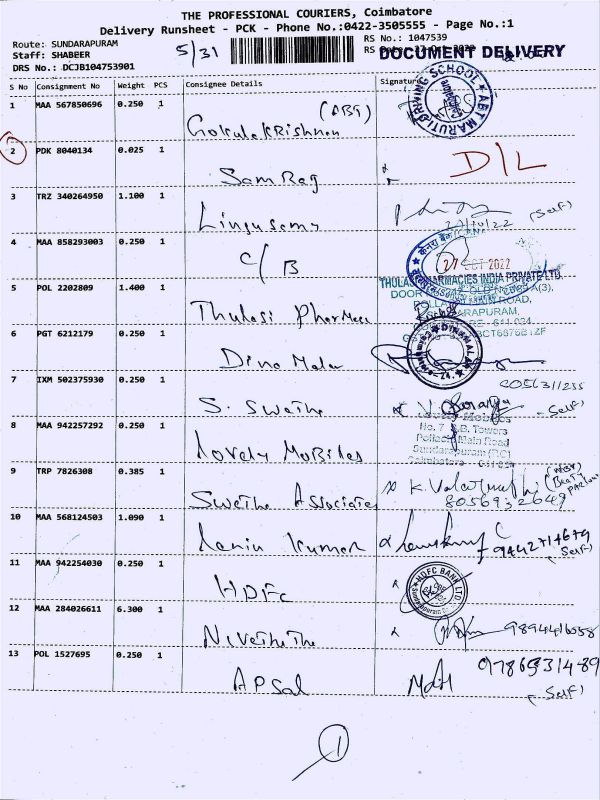 THE PROFESSIONAL COURIERS, Coimbatore
Delivery Runsheet - PCK - Phone No.:0422-3505555 - Page No.:1
Route: SUNDARAPURAM
Staff: SHABEER
DRS No.: DCJB104753901
5/31
RS No.: 1047539
RS
DOCUMENT DELIVERY
S No Consignment No Weight PCS Consignee Details Signature
1 MAA 567850696 0.250 1 Gokulakrishnan (ABT)
ABT MARUTI DRIVING SCHOOL
2 PDK 8040134 0.025 1 Sam Raj D/L
3 TRZ 340264950 1.100 1 Lingusamy (Self)
27/10/22
4 MAA 858293003 0.250 1 C/B
27 OCT 2022
5 POL 2202809 1.400 1 Thulasi Pharmacy
THULASI PHARMACIES INDIA PRIVATE LTD.
6 PGT 6212179 0.250 1 Dina Malar
DINAMALAR
7 IXM 502375930 0.250 1 S. Swetha
(Self)
8 MAA 942257292 0.250 1 Lovely Mobiles
No. 7 S.B. Towers
Pollachi Main Road
Sundarapuram (P.O)
9 TRP 7826308 0.385 1 Swetha Associates
8056932649
10 MAA 568124503 1.090 1 Kumar
9442714679
(Self)
11 MAA 942254030 0.250 1 HDFC
HDFC BANK LTD
12 MAA 284026611 6.300 1 Nivethitha
13 POL 1527695 0.250 1 APSal
9786931489
(Self)
1